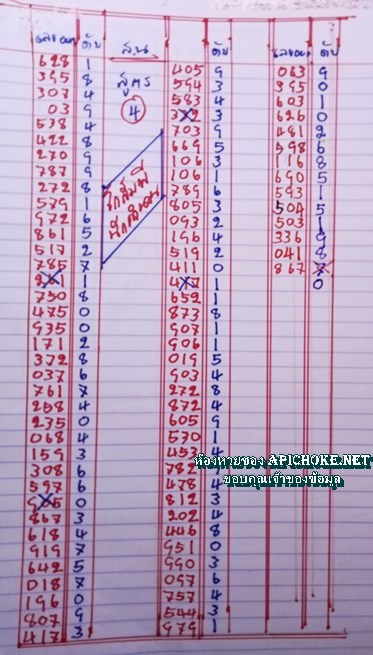 เลขออก ดับ
628 1
395 8
307 4
03 9
538 4
422 8
270 9
787 9
272 8
579 1
972 6
861 5
517 2
785 7
1
750 8
475 0
935 0
171 2
372 8
037 6
761 7
268 4
235 0
068 4
159 3
308 6
597 6
0
867 3
618 4
919 7
642 5
018 7
196 0
807 9
417 3
ส.น
สูตร
4
ดับ
405 9
594 3
583 4
3
703 9
669 5
106 3
106 1
789 6
805 3
093 2
196 4
519 2
411 0
1
652 1
873 8
907 1
906 1
019 5
903 4
272 8
872 4
605 9
530 1
453 4
782
478 4
812 3
202 4
446 8
951 0
990 3
097 6
757 4
544 3
979 1
เลขออก ดับ
063 9
395 0
603 1
626 0
481 2
598 6
116 8
690 5
593 1
504 5
503 1
336 9
041 8
867 7
0
ห้องหวยของ APICHOKE.NET
ขอบคุณเจ้าของข้อมูล